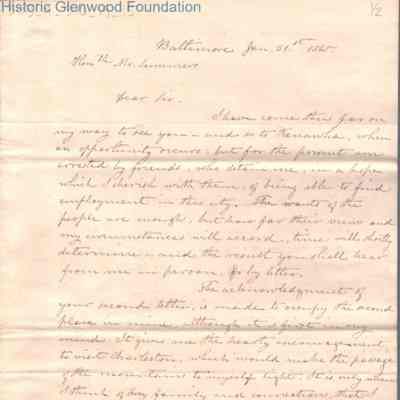 Historic Glenwood Foundation
1/2
Baltimore Jan. 31st 1845
Honble Mr. Summers
Dear Sir.
I have come thus far on
my way to see you – and so to Kanawha, when
an opportunity occurs; but for the present am
arrested by friends, who detain me, in a hope
which I cherish with them, of being able to find
employment in this city. The wants of the
people are enough, but how far their views and
my circumstances will accord, time will shortly
determine – and the result you shall hear
from me in person, or by letter.
The acknowledgment of
your second letter, is made to occupy the second
place in mine, although it is first in my
mind. It gives me the hearty encouragement,
to visit Charleston, which would make the passage
of the mountains to myself light. It is only when
I think of my family and connections, that I